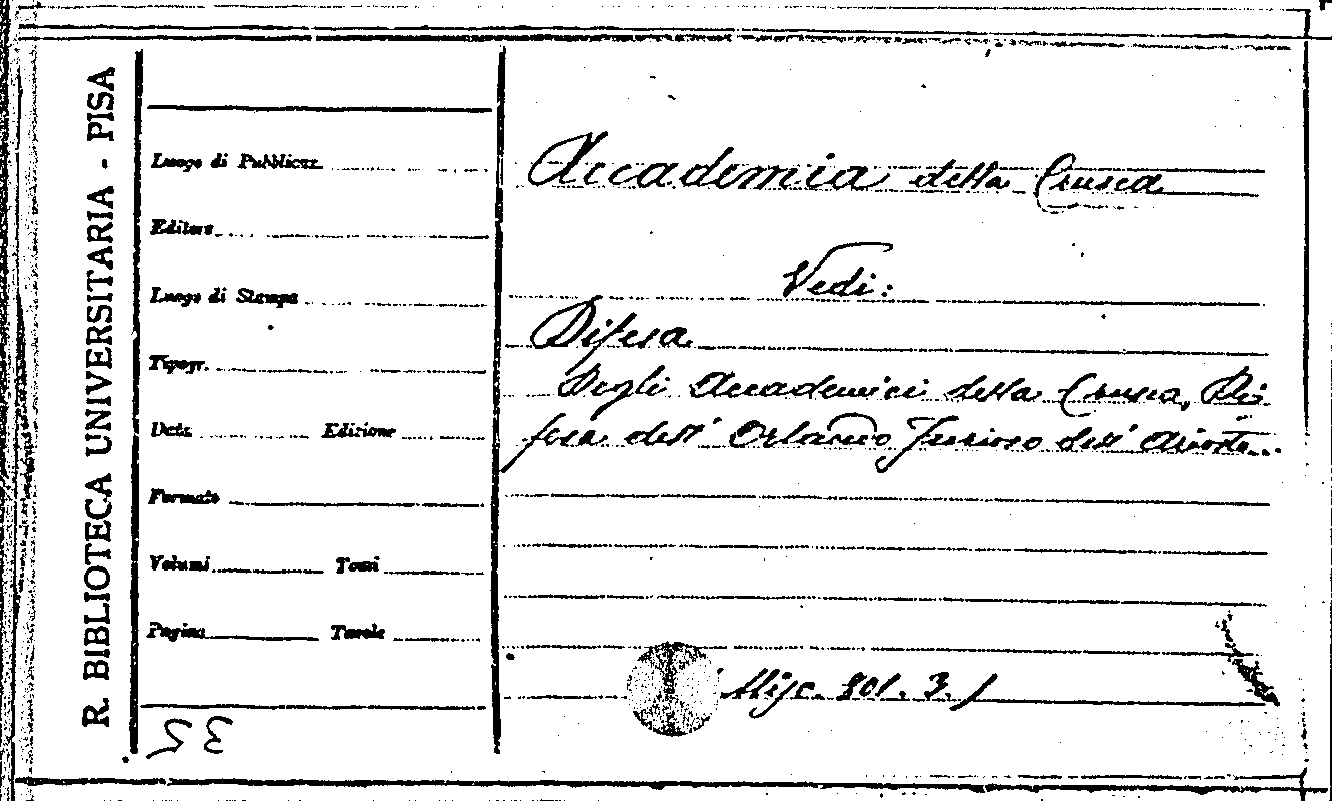 R. BIBLIOTECA UNIVERSITARIA - PISA
Luogo di Pubblicaz.
Editore
Luogo di Stampa
Tipogr.
Data Edizione
Formato
Volumi Tomi
Pagine Tavole
Accademia della Crusca
Vedi:
Difesa
Degli Accademici della Crusca, Di
fesa dell' Orlando Furioso dell' Ariosto...
Misc. 801. 3. 1